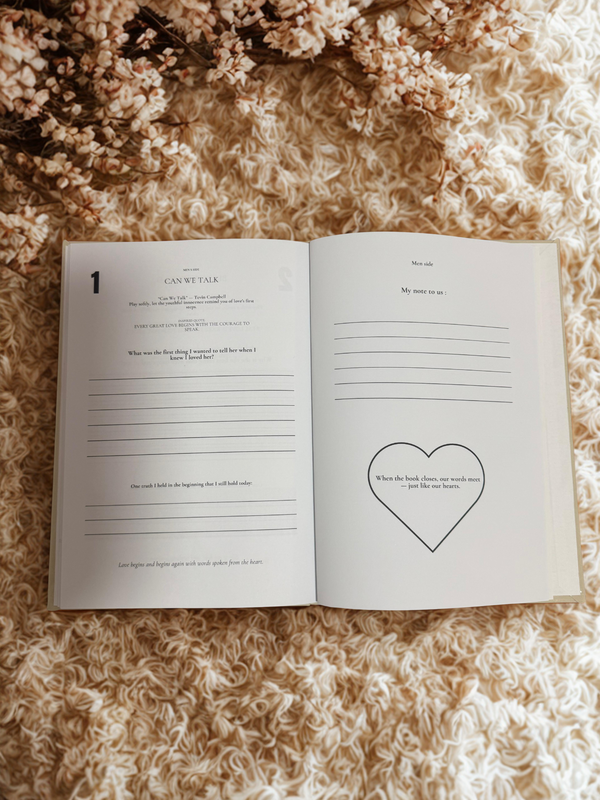 1
MEN'S SIDE
CAN WE TALK
"Can We Talk" — Tevin Campbell
Play softly, let the youthful nonsense remind you of love's first
steps.
EVERY GREAT LOVE BEGINS WITH THE COURAGE TO
SPEAK
What was the first thing I wanted to tell her when I
knew I loved her?
One truth I held in the beginning that I still hold today:
Love begins and begins again with words spoken from the heart.
Men side
My note to us :
When the book closes, our words meet
— just like our hearts.